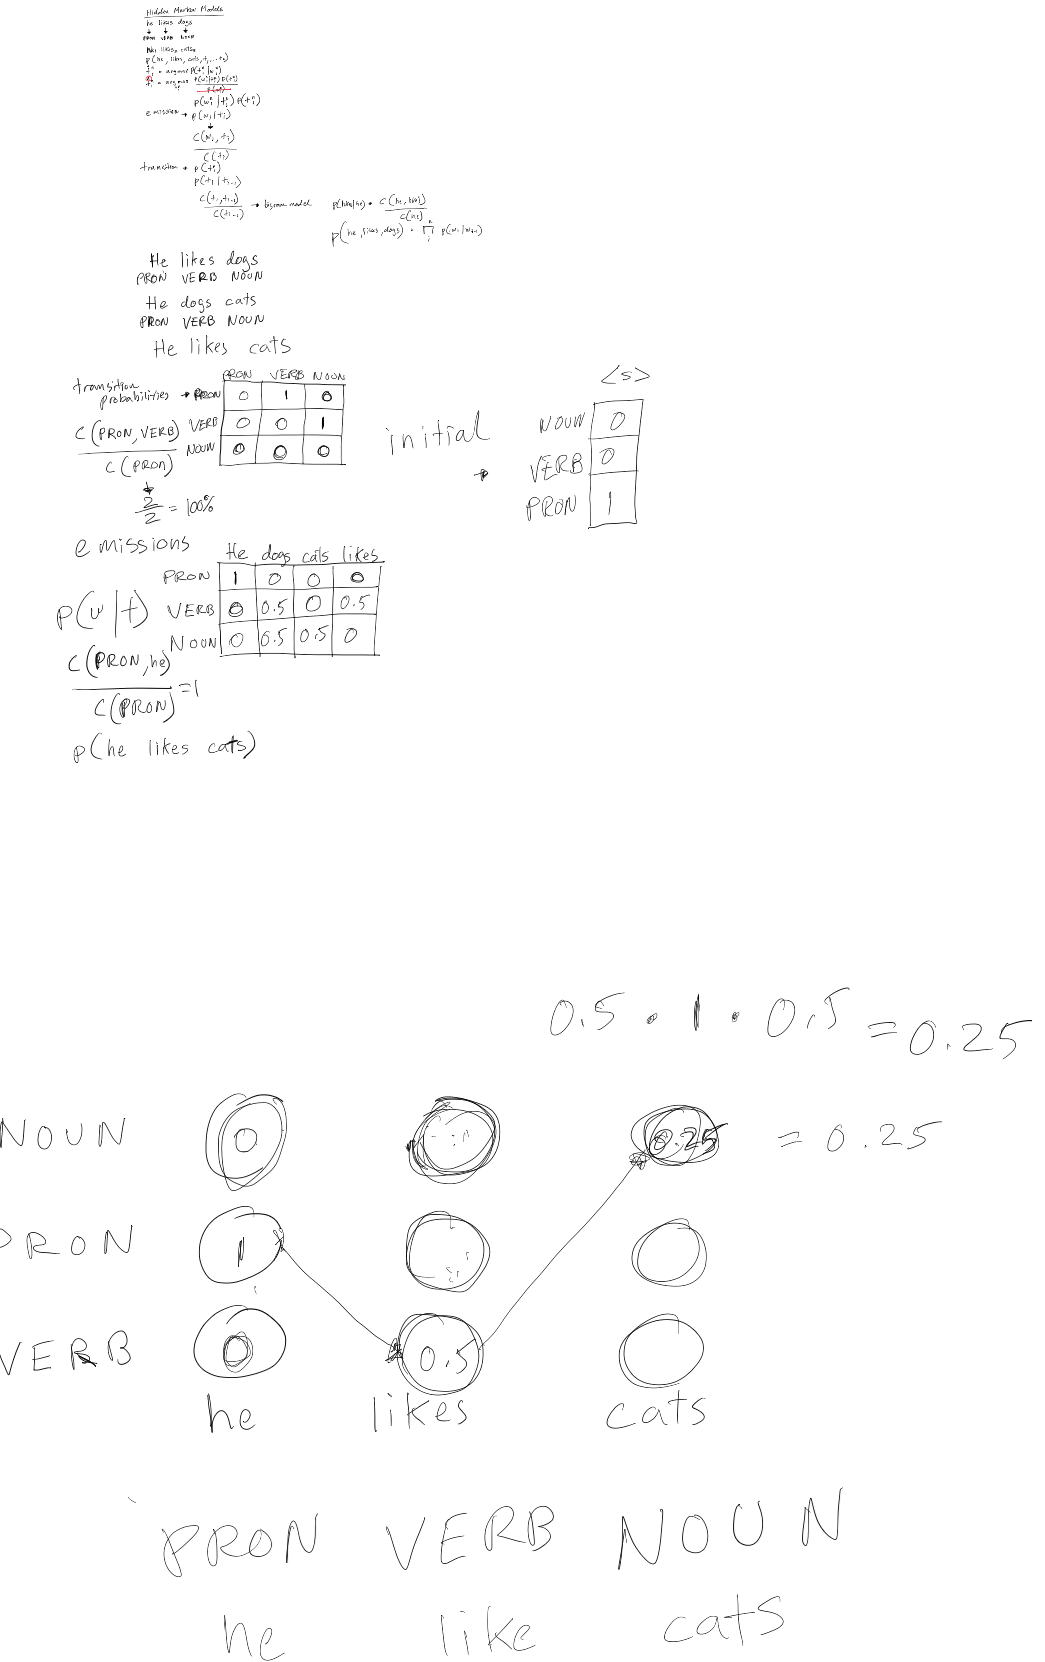 Hidden Markov Models
he likes dogs
PRON VERB NOUN
likes cats
p(he, likes, cats, t₁...tₙ)
= argmax P(t₁ⁿ|w₁ⁿ)
= argmax P(w₁ⁿ|t₁ⁿ) P(t₁ⁿ)
P(w₁ⁿ|t₁ⁿ) P(t₁ⁿ)
emission → P(wᵢ|tᵢ)
C(wᵢ, tᵢ)
C(tᵢ)
transition → P(t₁ⁿ)
P(tᵢ|tᵢ₋₁)
C(tᵢ, tᵢ₋₁)
C(tᵢ₋₁)
→ bigram model
p(likes|he) = C(he, likes)
C(he)
p(he, likes, dogs) = ∏ p(wᵢ|wᵢ₋₁)
He likes dogs
PRON VERB NOUN
He dogs cats
PRON VERB NOUN
He likes cats
PRON VERB NOUN
transition probabilities → PRON 0 1 0
VERB 0 0 1
NOUN 0 0 0
C(PRON, VERB)
C(PRON)
2
2
= 100%
initial →
<s>
NOUN 0
VERB 0
PRON 1
emissions
He dogs cats likes
PRON 1 0 0 0
VERB 0 0.5 0 0.5
NOUN 0 0.5 0.5 0
p(w|t)
C(PRON, he)
C(PRON)
=1
p(he likes cats)
0.5 · 1 · 0.5 = 0.25
NOUN 0 0.25 = 0.25
PRON 1
VERB 0 0.5
he likes cats
PRON VERB NOUN
he like cats